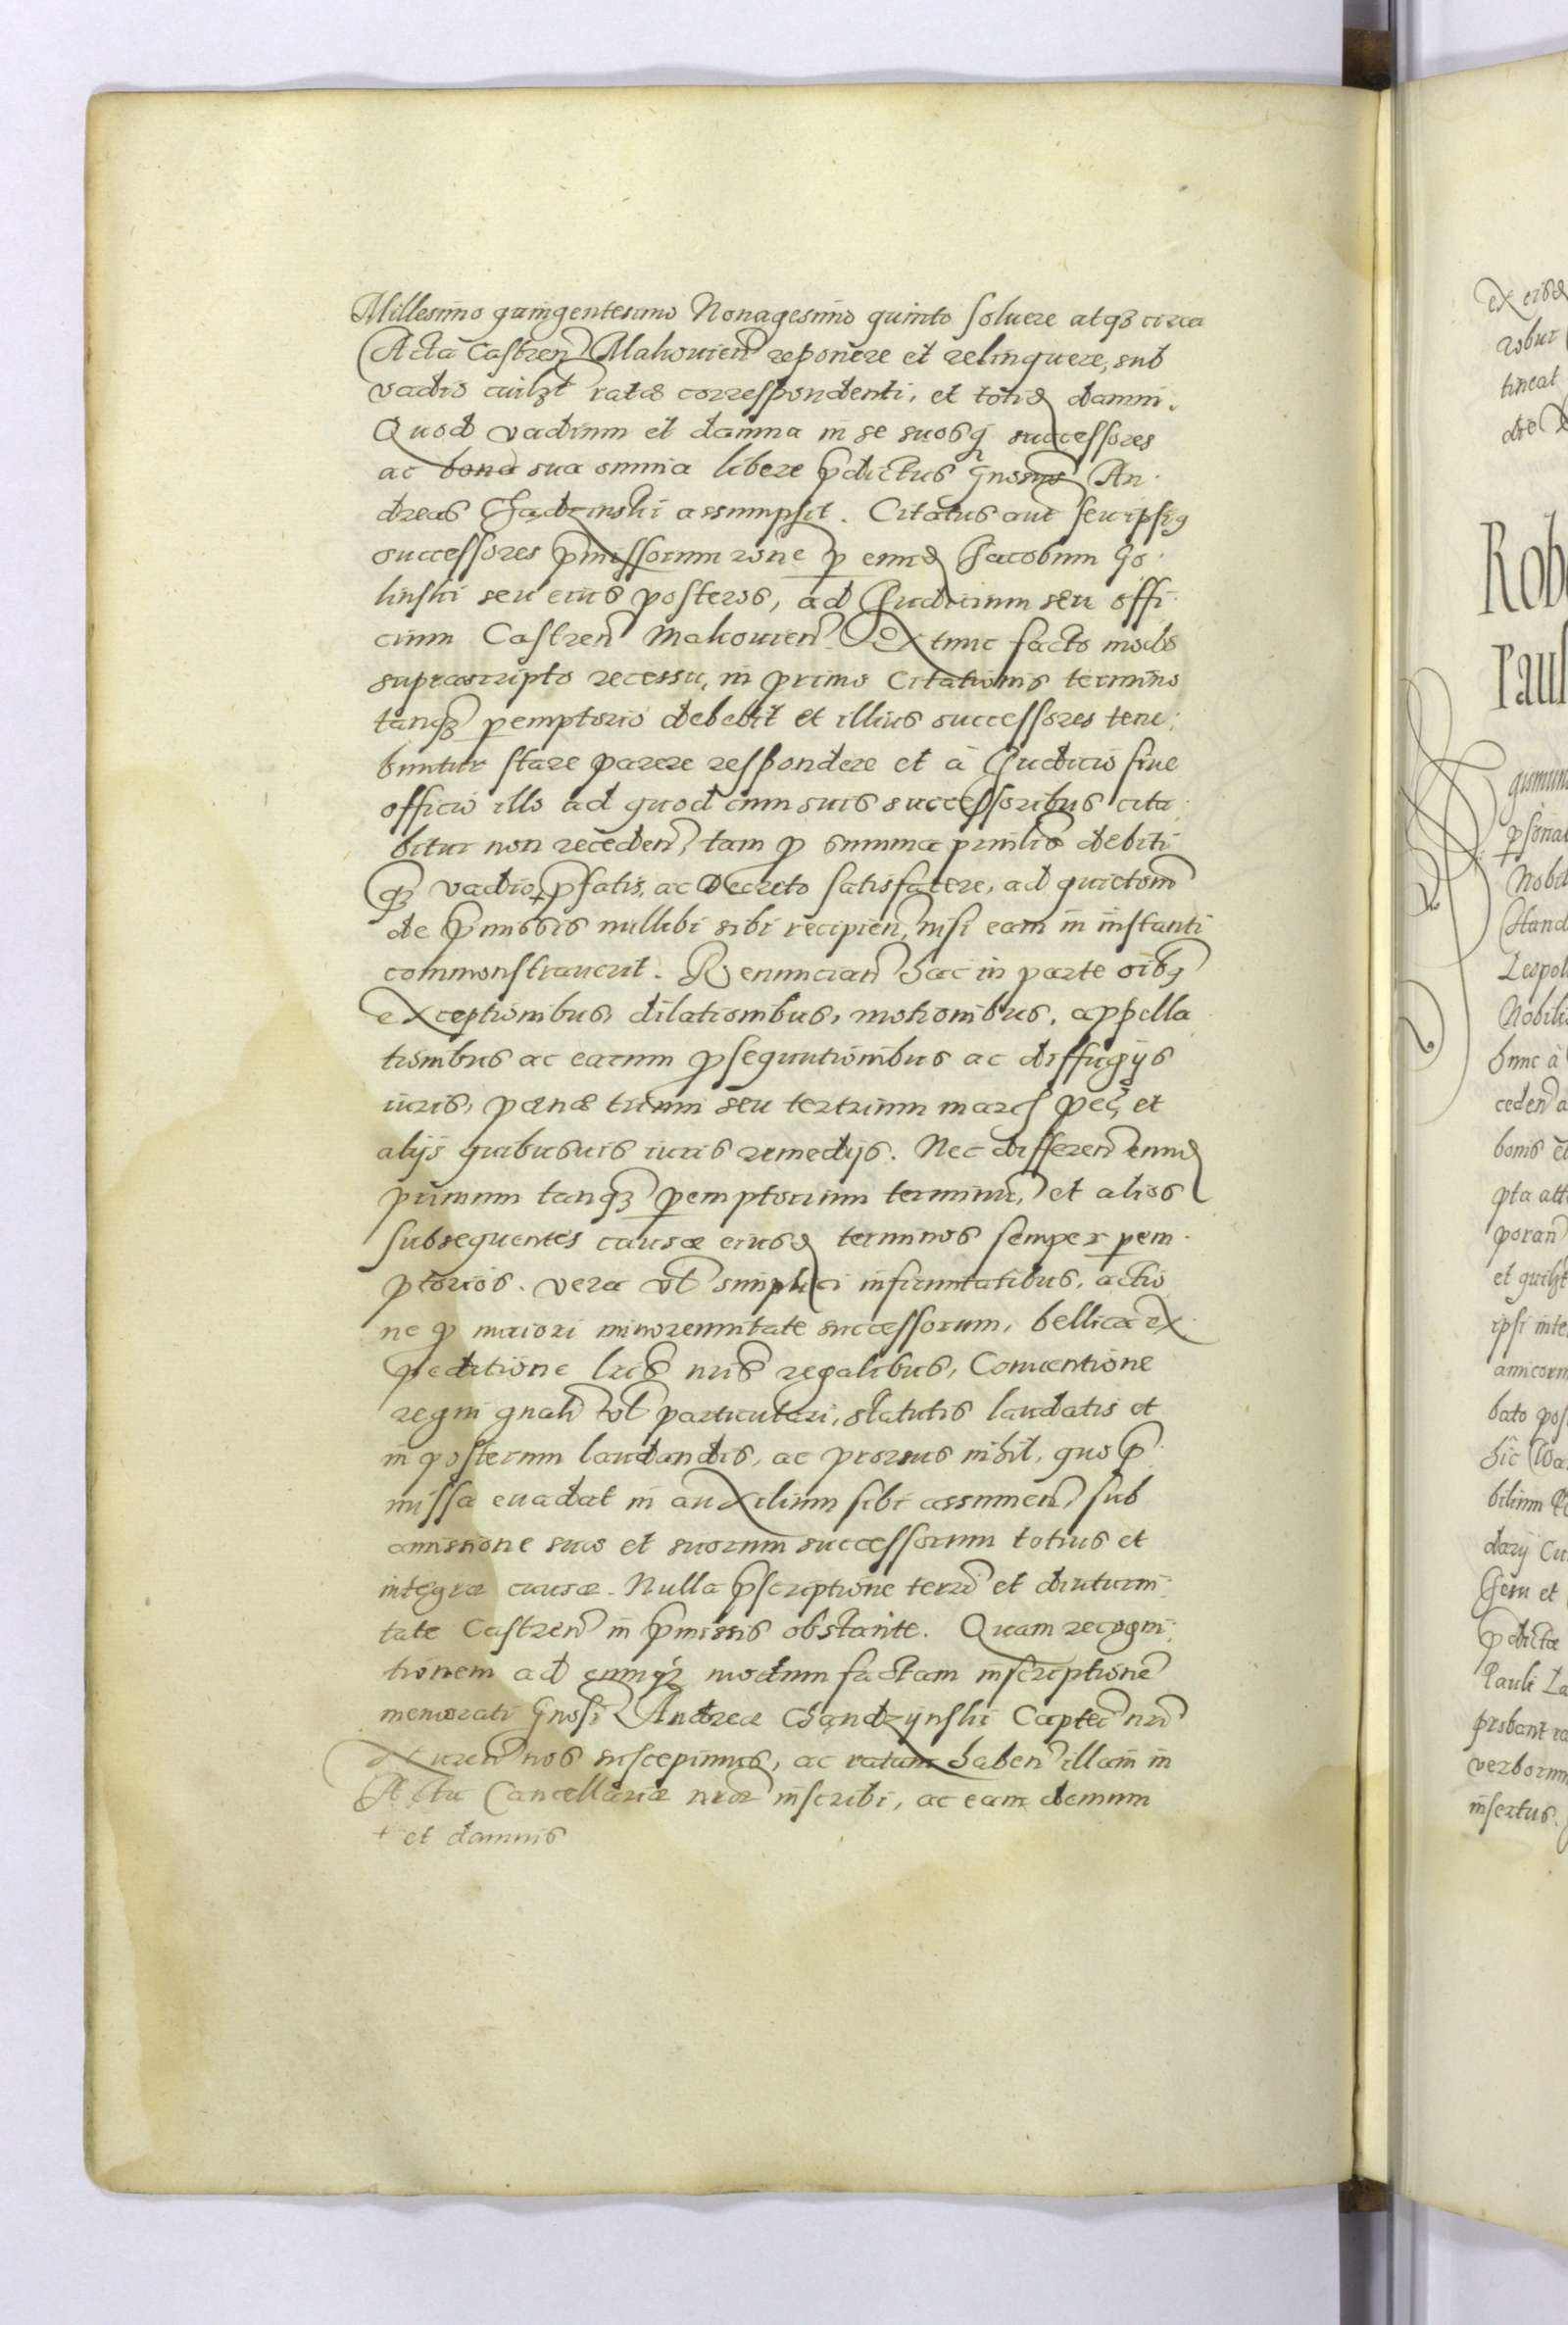 Millesimo quingentesimo Nonagesimo quinto soluere atq3 circa
Acta Castren Makouien reponere et relinquere, sub
vadio cuilꝫt ratæ correspondenti, et totid damni.
Quod vadium et damna in se suosq successores
ac bona sua omnia libere p̄dictus Gnosus An
dreas Chądzinski assumpsit. Citatus aut seu ipsiꝰ
successores p̄missorum rone ꝑ eund Jacobum Go
linski seu eius posteros, ad Judicium seu offi
cium Castren Makouien. Ex tunc facto modo
suprascripto recessu, in primo Citationis termino
tanqꝫ ꝑemptorio debebit et illius successores tene
buntur stare parere respondere et à Judicio siue
officio illo ad quod cum suis successoribus cita
bitur non receden, tam ꝓ summa prinlis debiti
qꝫ vadio + p̄fatis, ac Decreto satisfacere, ad quietom
de p̄missis nullibi sibi recipien, nisi eam in instanti
commonstrauerit. Renuncian hac in parte oibꝰ
exceptionibus, dilationibus, motionibus, appella
tionibus ac earum ꝓsequutionibus ac diffugijs
iuris, pœnæ trium seu tertrium marc pec, et
alijs quibusuis iuris remedijs. Nec differen eund
primum tanqꝫ ꝑemptorium terminu, et alios
subsequentes causæ eiusd terminos semper perem
ptorios. vera vl simplici infirmitatibus, actio
ne ꝓ maiori minorennitate successorum, bellica ex
peditione lris nris regalibus, Conuentione
regni gnali vl particulari, statutis laudatis et
in posterum laudandis, ac prorsus nihil, quo p̄
missa euadat in auxilium sibi assumen, sub
amissione suæ et suorum successorum totius et
integræ causæ. Nulla p̄scriptione terri et diuturni
tate Castren in p̄missis obstante. Quam recogni
tionem ad eumqꝫ modum factam inscriptione
memorati Gnosi Andreæ Chądzijnski Captei nri
nos suscepimus, ac ratam haben illam in
Acta Cancellariæ nræ inscribi, ac eam demum
+ et damnis
ex eisd
robur
tineat
die
Rob
Paul
gismun
ꝑsonal
Nobil
Stand
Leopol
Nobilis
hunc à
ceden a
bonis
pta att
poran
et quilꝫt
ipsi inte
amicorm
bato pos
hic Wa
bilium
darij Cu
Jesu et
p̄dicta
Pauli La
probant ra
verborum
insertus.